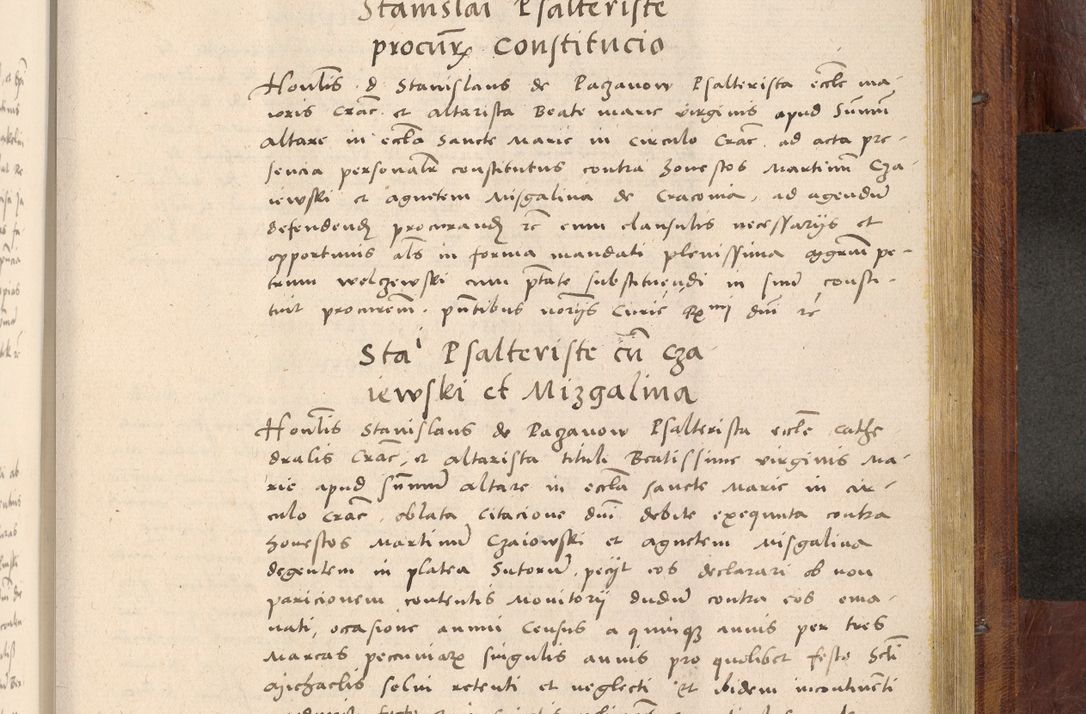 Stanislai Psalteriste
procurꝝ Constitucio
Honlis d Stanislaus de Paganow Psalterista eccle ma-
ioris Crac. et altarista Beate marie virginis apud Summu
altare in eccla Sancte Marie in Circulo Crac. ad acta pre-
sencia personalr constitutus contra honestos Martinu Cza
iewski et agnetem Misgalina de Cracouia, ad agendu
defendend procurand rc cum clausulis necessarijs et
opportunis als in forma mandati plenissima pe-
trum welczewski cum ptate substituendi in sinu consti-
tuit procurem. pntibus norijs Curie Rxmi dni rc
Sta Psalteriste cu Cza
iewski et Mizgalina
Honlis Stanislaus de Paganow Psalterista eccle Cathe
dralis Crac. et altarista tituli Beatissime virginis Ma-
rie apud summu altare in eccla sancte Marie in cir-
culo Crac. oblata Citacione dni debite exequuta contra
honestos Martinu Czaiowski et agnetem Misgalina
degentem in platea Sutoru, pecijt eos declarari ob non
paricionem contentis Monitorij dudu contra eos ema-
nati, occasione annui Census a quinqꝫ annis per tres
Marcas pecuniarꝝ singulis annis pro quolibet festo Scti
Michaelis solui retenti et neglecti Et ibidem incontinenti